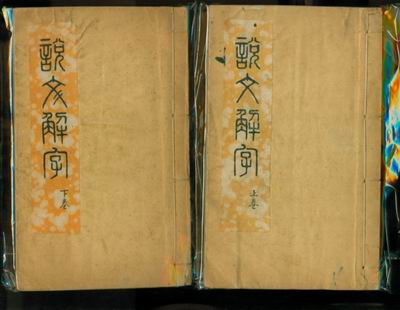 説文解字
上卷
説文解字
下卷